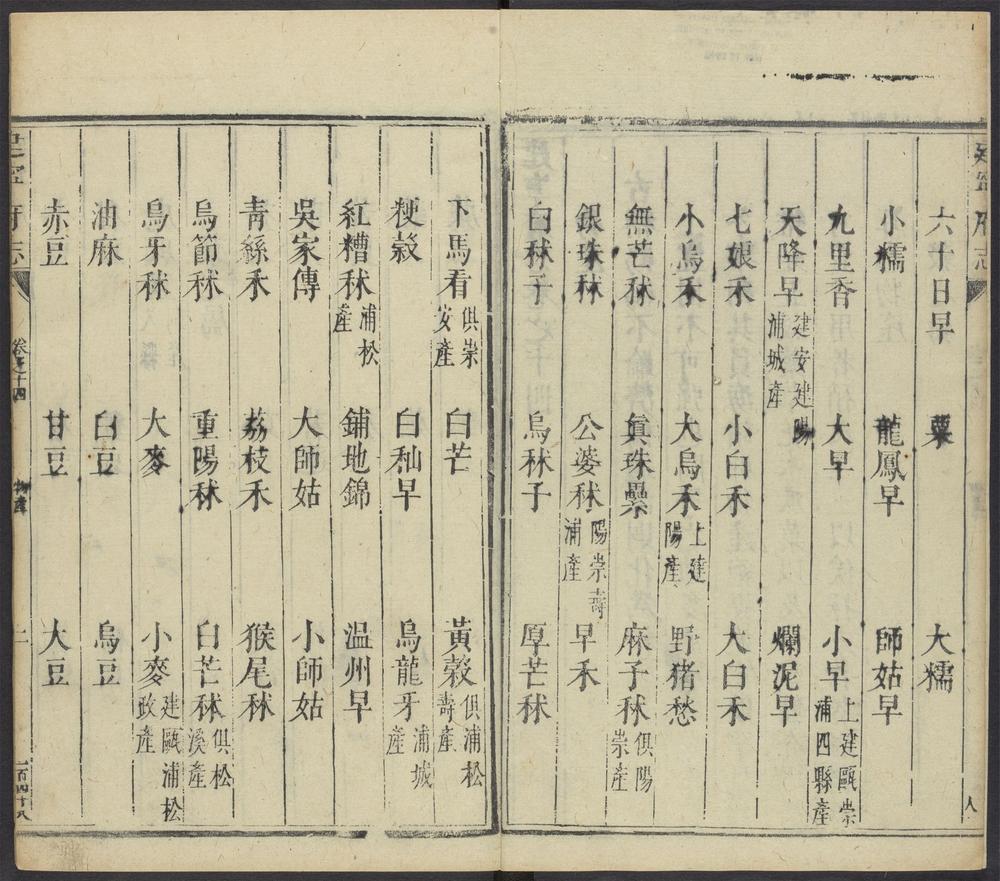 六十日早　粟　大糯
小糯　龍鳳早　師姑早
九里香　大早　小早上建甌崇浦四縣產
天降早建安建陽浦城產　爛泥早
七娘禾　小白禾　大白禾
小烏禾　大烏禾上建陽產　野猪愁
無芒秫　真珠櫐　麻子秫俱陽崇產
銀珠秫　公婆秫陽崇壽浦產　早禾
白秫子　烏秫子　厚芒秫
下馬看俱崇安產　白芒　黃穀俱浦松壽產
粳穀　白秈早　烏龍牙浦城產
紅糟秫浦松產　鋪地錦　温州早
吳家傳　大師姑　小師姑
青絲禾　荔枝禾　猴尾秫
烏節秫　重陽秫　白芒秫俱松溪產
烏牙秫　大麥　小麥建甌浦松政產
油麻　白豆　烏豆
赤豆　甘豆　大豆
府志　卷之十四　物產　二　一百四十八